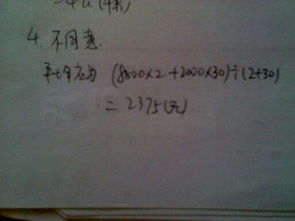 4. 不同意.
平均应为 (8000×2+2000×30)÷(2+30)
= 2375(元)